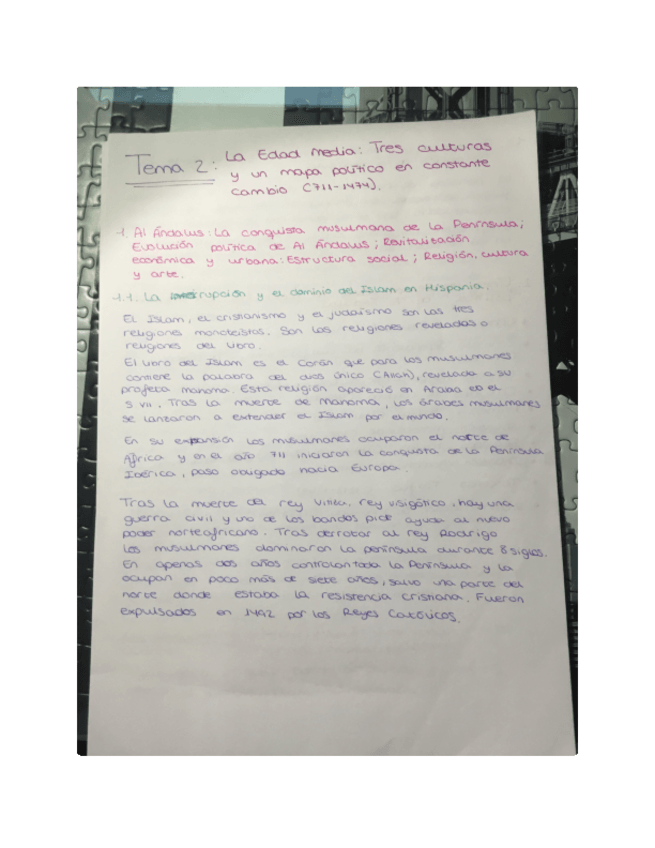 Tema 2: La Edad media: Tres culturas
y un mapa político en constante
cambio (711-1474).
-1. Al Ándalus: La conquista musulmana de la Península;
Evolución política de Al Ándalus; Revitalización
económica y urbana: Estructura social; Religión, cultura
y arte.
-1.1. La irrupción y el dominio del Islam en Hispania.
El Islam, el cristianismo y el judaísmo son las tres
religiones monoteístas. Son las religiones reveladas o
religiones del libro.
El libro del Islam es el Corán que para los musulmanes
contiene la palabra del dios único (Allah), revelada a su
profeta mahoma. Esta religión apareció en Arabia en el
S.VII. Tras la muerte de mahoma, los árabes musulmanes
se lanzaron a extender el Islam por el mundo.
En su expansión los musulmanes ocuparon el norte de
África y en el año 711 iniciaron la conquista de la Península
Ibérica, paso obligado hacia Europa.
Tras la muerte del rey Vitiza, rey visigótico, hay una
guerra civil y uno de los bandos pide ayuda al nuevo
poder norteafricano. Tras derrotar al rey Rodrigo
los musulmanes dominaron la península durante 8 siglos.
En apenas dos años controlan toda la Península y la
ocupan en poco más de siete años, salvo una parte del
norte donde estaba la resistencia cristiana. Fueron
expulsados en 1492 por los Reyes Católicos.